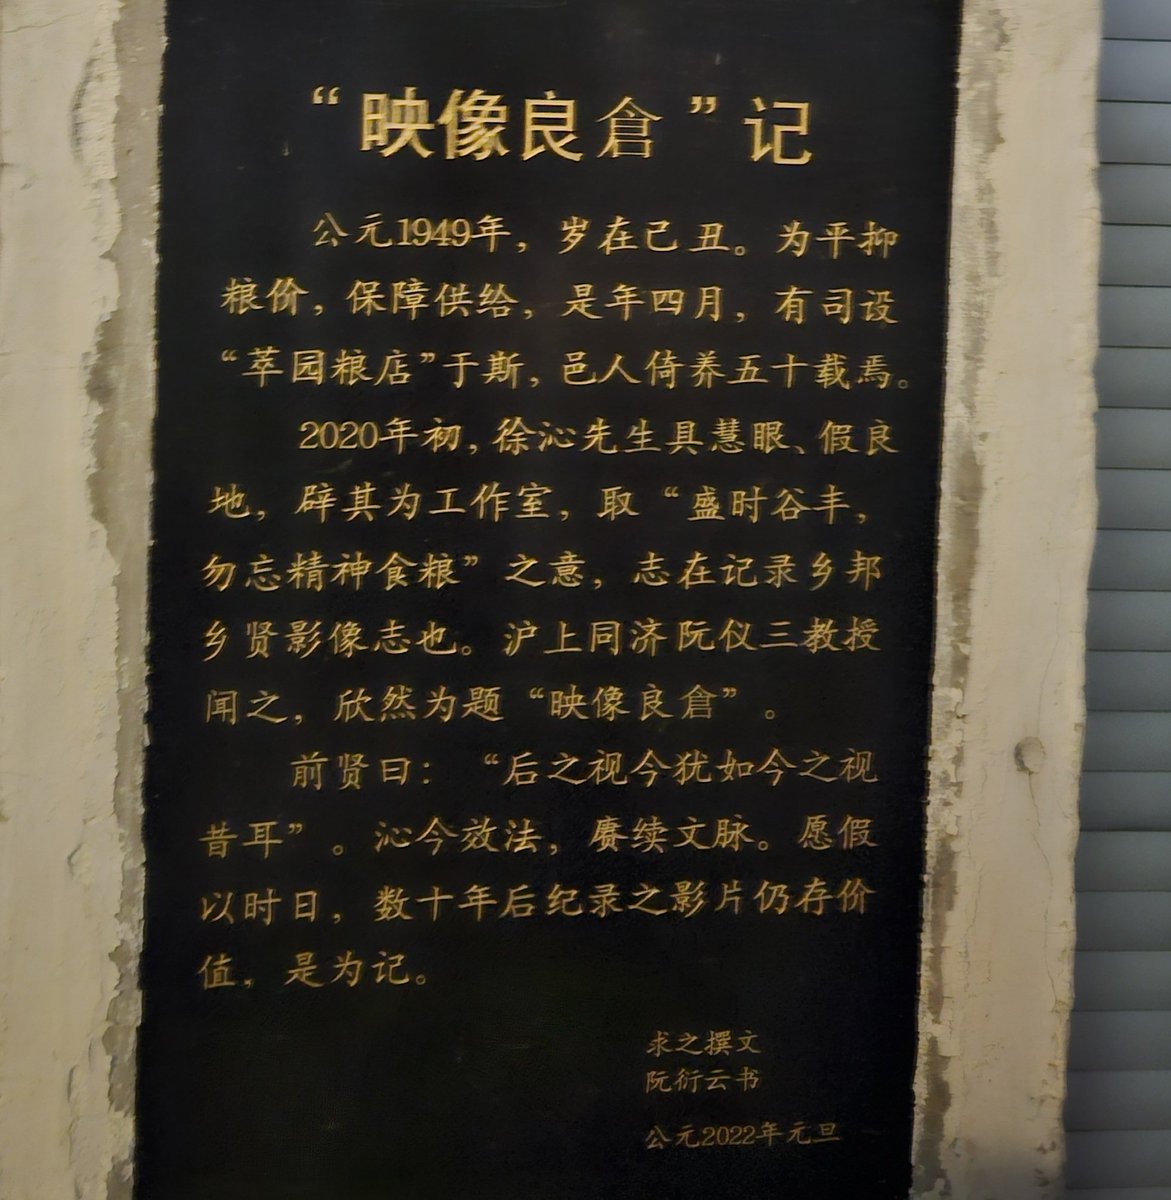 “映像良倉”记
公元1949年，岁在己丑。为平抑
粮价，保障供给，是年四月，有司设
“萃园粮店”于斯，邑人倚养五十载焉。
2020年初，徐沁先生具慧眼、假良
地，辟其为工作室，取“盛时谷丰，
勿忘精神食粮”之意，志在记录乡邦
乡贤影像志也。沪上同济阮仪三教授
闻之，欣然为题“映像良倉”。
前贤曰：“后之视今犹如今之视
昔耳”。沁今效法，赓续文脉。愿假
以时日，数十年后纪录之影片仍存价
值，是为记。
求之撰文
阮衍云书
公元2022年元旦